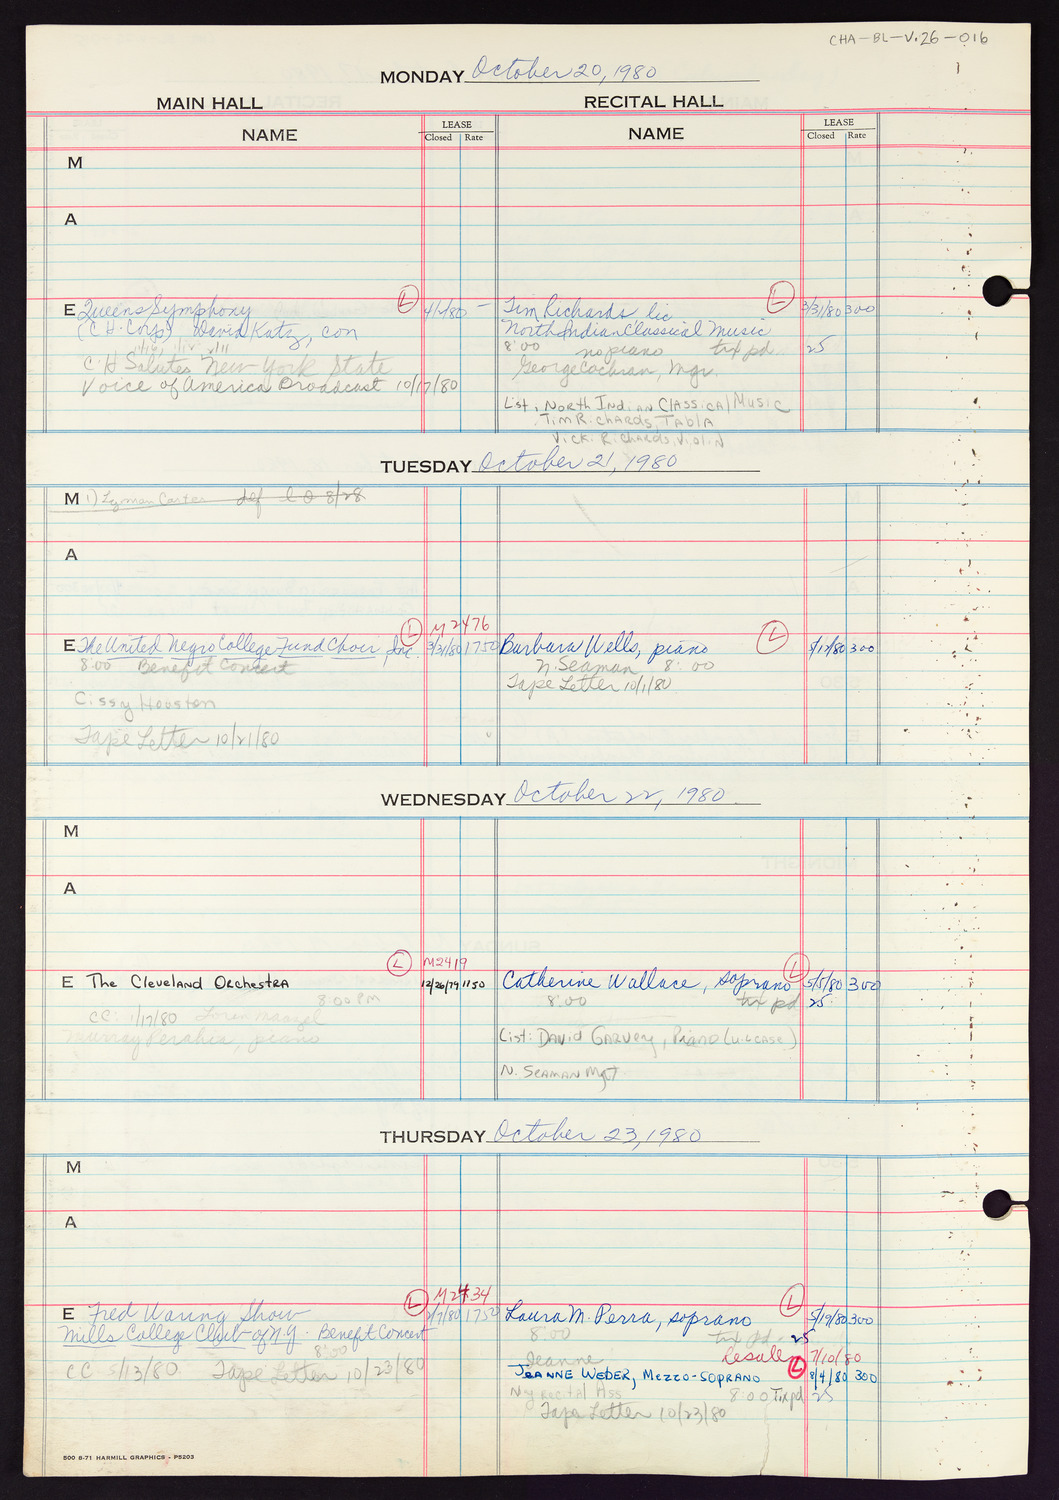 CHA-BL-V.26-016
MONDAY October 20, 1980
MAIN HALL RECITAL HALL
NAME LEASE Closed Rate NAME LEASE Closed Rate
M
A
E Queens Symphony L 4/1/80 —
(C.H. Corp) David Katz, con
C H Salutes New York State
Voice of America Broadcast 10/17/80
Tim Richards lic L 3/31/80 300
North Indian Classical Music
8:00 no piano tix pd. 25
George Cochran, Mgr.
List: North Indian Classical Music
Tim Richards, Tabla
Vicki Richards, Violin
TUESDAY October 21, 1980
M 1) Lyman Carter def l o 8/28
A
L M2476
E The United Negro College Fund Choir, Inc. 3/31/80 1750
8:00 Benefit Concert
Cissy Houston
Tape Letter 10/21/80
Barbara Wells, piano L 5/12/80 300
N. Seaman 8:00
Tape Letter 10/1/80
WEDNESDAY October 22, 1980
M
A
L M2419
E The Cleveland Orchestra 12/26/79 1150
8:00 PM
CC: 1/17/80 Loren Maazel
Murray Perahia, piano
Catherine Wallace, soprano L 5/5/80 300
8:00 tix pd 25
List: David Garvey, Piano (U.L case)
N. Seaman Mgt
THURSDAY October 23, 1980
M
A
L M2434
E Fred Waring Show 2/7/80 1750
Mills College Club of N.Y. Benefit Concert
8:00
CC 5/13/80 Tape Letter 10/23/80
Laura M. Perra, soprano L 5/19/80 300
8:00 tix pd. 25
Jeanne Resale 7/10/80
Jeanne Weber, Mezzo-Soprano L 8/4/80 300
NY Recital Ass 8:00 Tix pd 25
Tape Letter 10/23/80
500 6-71 HARMILL GRAPHICS - P5203